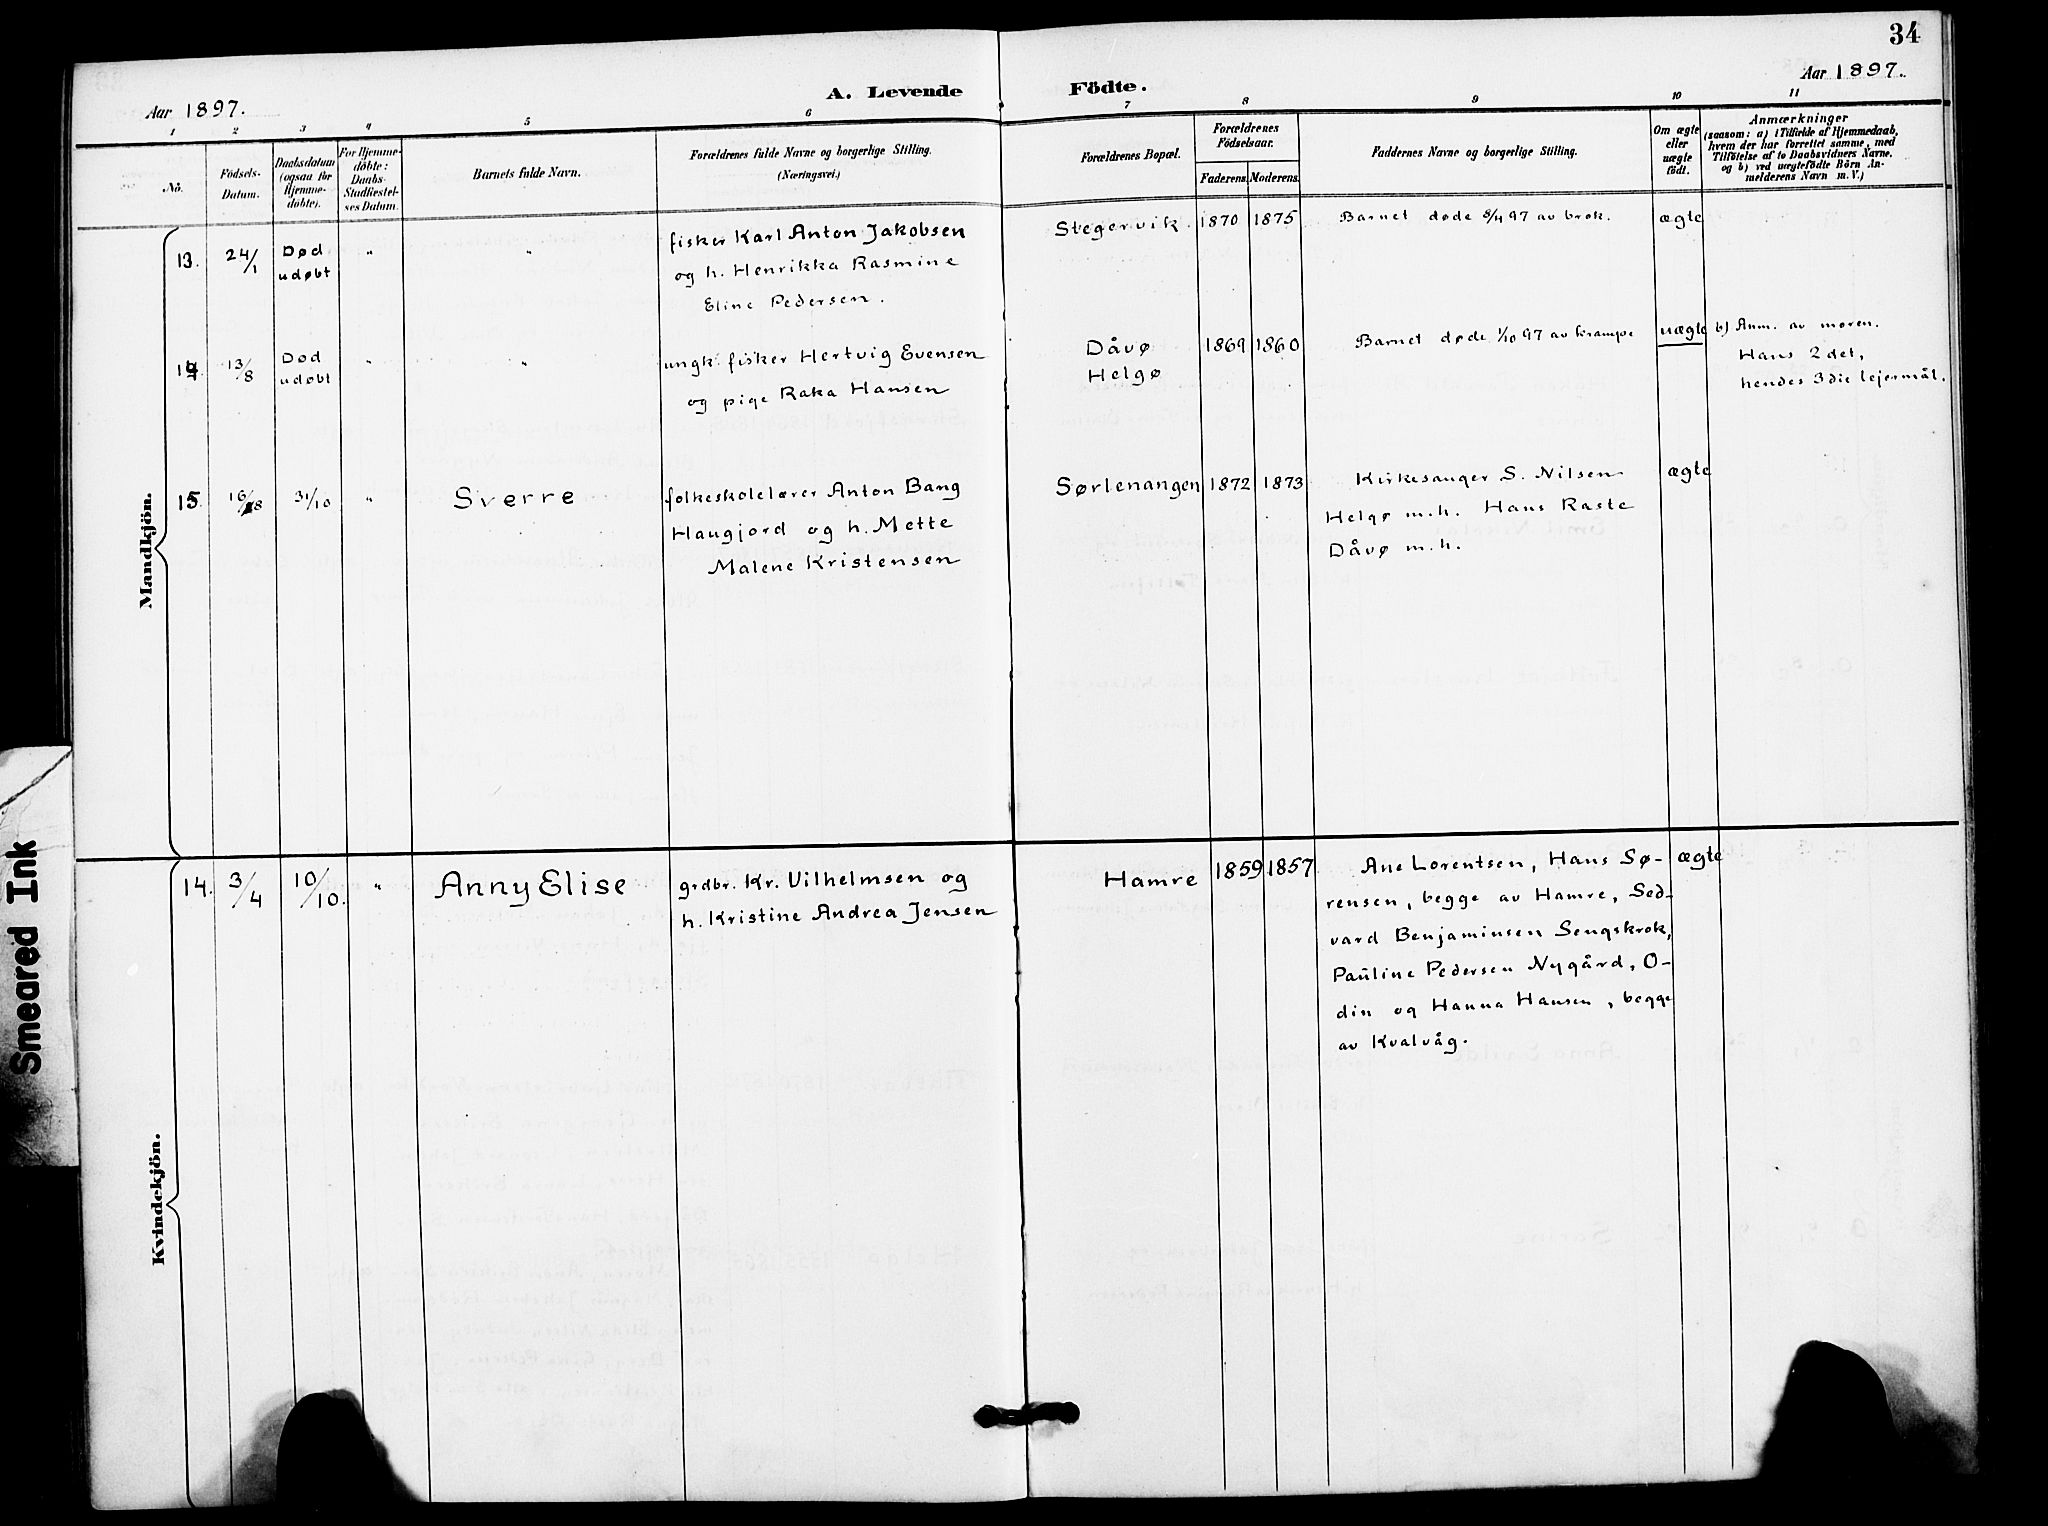 34
Aar 1897.
A. Levende Födte.
Aar 1897.
1 2 3 4 5 6 7 8 9 10 11
No.
Födsels-
Datum.
Daabsdatum
(ogsaa for
Hjemme-
döbte).
For Hjemme-
döbte:
Daabs-
Stadfæstel-
ses Datum.
Barnets fulde Navn.
Forældrenes fulde Navne og borgerlige Stilling.
(Næringsvei.)
Forældrenes Bopæl.
Forældrenes
Födselsaar.
Faderens. Moderens.
Faddernes Navne og borgerlige Stilling.
Om ægte
eller
uægte
født.
Anmærkninger
(saasom: a) i Tilfælde af Hjemmedaab,
hvem der har forrettet samme, med
Tilföielse af to Daabsvidners Navne.
og b) ved uægtefödte Börn An-
melderens Navn m. V.)
Mandkjön.
13. 24/1 Død udøbt " " fisker Karl Anton Jakobsen
og h. Henrikka Rasmine
Eline Pedersen.
Stegervik. 1870 1875 Barnet døde 8/4 97 av brok. ægte
14 13/8 Død udøbt " " ungk. fisker Hertvig Evensen
og pige Raka Hansen
Dåvø
Helgø
1869 1860 Barnet døde 1/10 97 av krampe uægte b) Anm. av moren.
Hans 2det,
hendes 3die lejermål.
15. 16/8 31/10 " Sverre folkeskolelærer Anton Bang
Haugjord og h. Mette
Malene Kristensen
Sørlenangen 1872 1873 Kirkesanger S. Nilsen
Helgø m.h. Hans Raste
Dåvø m.h.
ægte
Kvindekjön.
14. 3/4 10/10. " Anny Elise grdbr. Kr. Vilhelmsen og
h. Kristine Andrea Jensen
Hamre 1859 1857 Ane Lorentsen, Hans Sø-
rensen, begge av Hamre, Sed-
vard Benjaminsen Sengskrok,
Pauline Pedersen Nygård, O-
din og Hanna Hansen, begge
av Kvalvåg.
ægte
Smeared Ink